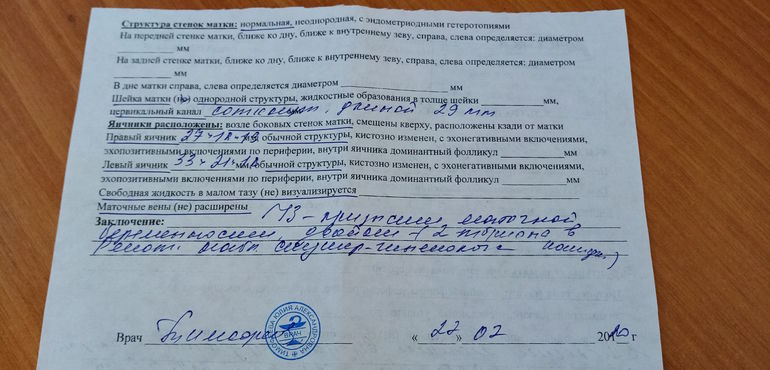 Структура стенок матки: нормальная, неоднородная, с эндометриодными гетеротопиями
На передней стенке матки, ближе ко дну, ближе к внутреннему зеву, справа, слева определяется: диаметром
__________ мм
На задней стенке матки, ближе ко дну, ближе к внутреннему зеву, справа, слева определяется: диаметром
__________ мм
В дне матки справа, слева определяется диаметром ____________________ мм
Шейка матки (не) однородной структуры, жидкостные образования в толще шейки __________ мм,
цервикальный канал сомкнут, длиной 29 мм
Яичники расположены: возле боковых стенок матки, смещены кверху, расположены кзади от матки
Правый яичник 27×18× мм, обычной структуры, кистозно изменен, с эхонегативными включениями,
эхопозитивными включениями по периферии, внутри яичника доминантный фолликул __________мм
Левый яичник 33×21× мм, обычной структуры, кистозно изменен, с эхонегативными включениями,
эхопозитивными включениями по периферии, внутри яичника доминантный фолликул __________мм
Свободная жидкость в малом тазу (не) визуализируется
Маточные вены (не) расширены
Заключение: УЗ - признаки маточной
беременности, двойня (2 в
акушер-гинеколога
Врач « 22 » 02 20 г
ТИМО ЮЛИЯ АЛЕКСАНДРОВНА
ВРАЧ